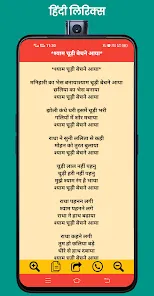 हिंदी लिरिक्स
"श्याम चूड़ी बेचने आया"
"श्याम चूड़ी बेचने आया"
मनिहारी का भेस बनाया श्याम चूड़ी बेचने आया
छलिया का भेस बनाया
श्याम चूड़ी बेचने आया
झोली कंधे धरी इसमें चूड़ी भरी
गलियों में शोर मचाया
श्याम चूड़ी बेचने आया
राधा ने सुनी ललिता से कही
मोहन को तुरत बुलाया
श्याम चूड़ी बेचने आया
चूड़ी लाल नहीं पहनु
चूड़ी हरी नहीं पहनु
मुझे श्याम रंग है भाया
श्याम चूड़ी बेचने आया
राधा पहनन लगी
श्याम पहनाने लगे
राधा ने हाथ बढाया
श्याम चूड़ी बेचने आया
राधा कहने लगी
तुम हो छलिया बड़े
धीरे से हाथ दबाया